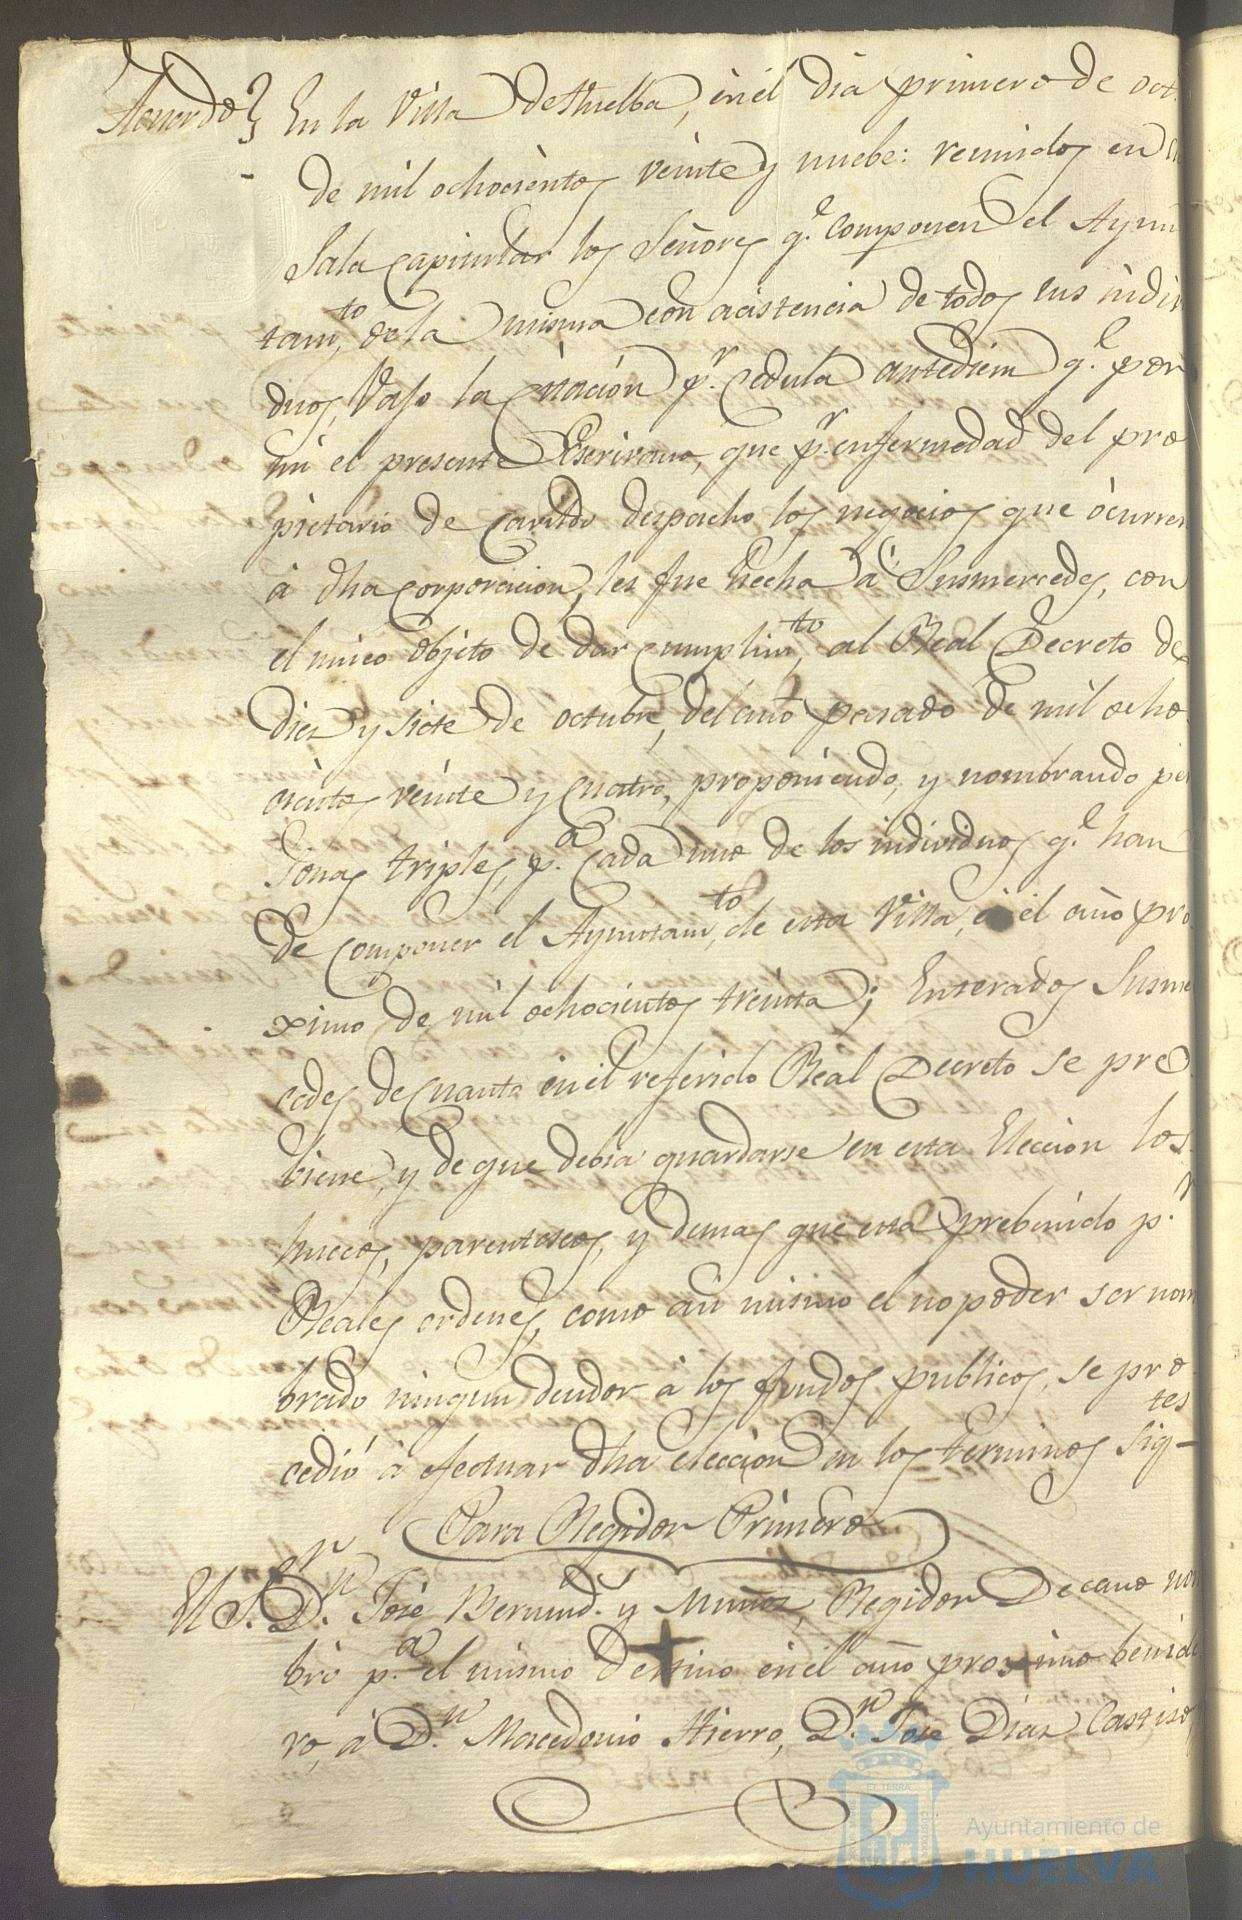 Acuerdo} En la Villa de Huelba, en el dia primero de oct.
de mil ochocientos veinte y nuebe: reunidos en
Sala capitular los Señores q.e componen el Ayun
tam.to de la misma con acistencia de todos sus indivi
duos, Vajo la citación p.r cedula antediem q.e por
mi el presente Escrivano, que p.r enfermedad del pro
pietario de Cavildo despacho los negocios que òcurren
à dha corporacion, les fue hecha à Susmercedes, con
el unico objeto de dar cumplim.to al Real Decreto de
diez y siete de octubre, del año pasado de mil ocho
cientos veinte y cuatro, proponiendo, y nombrando per
sonas triples, p.a cada uno de los individuos q.e han
de componer el Ayuntam.to de esta Villa, en el año pro
ximo de mil ochocientos treinta; Enterados Susmer
cedes de cuanto en el referido Real Decreto se pre
biene, y de que debia guardarse en esta Eleccion los
huecos, parentescos, y demas que esta prebenido p.r
Reales ordenes, como asi mismo el no poder ser nom
brado ningun deudor à los fondos publicos, se pro
cedió à efectuar dha eleccion en los terminos sig-tes
Para Regidor Primero
El S.or D.n José Bermud.s y Muñoz, Regidor Decano nom
bro p.a el mismo destino en el año proximo benide
ro, à D.n Macedonio Hierro, D.n José Diaz Castizo,
ET TERRA
Ayuntamiento de
HUELVA